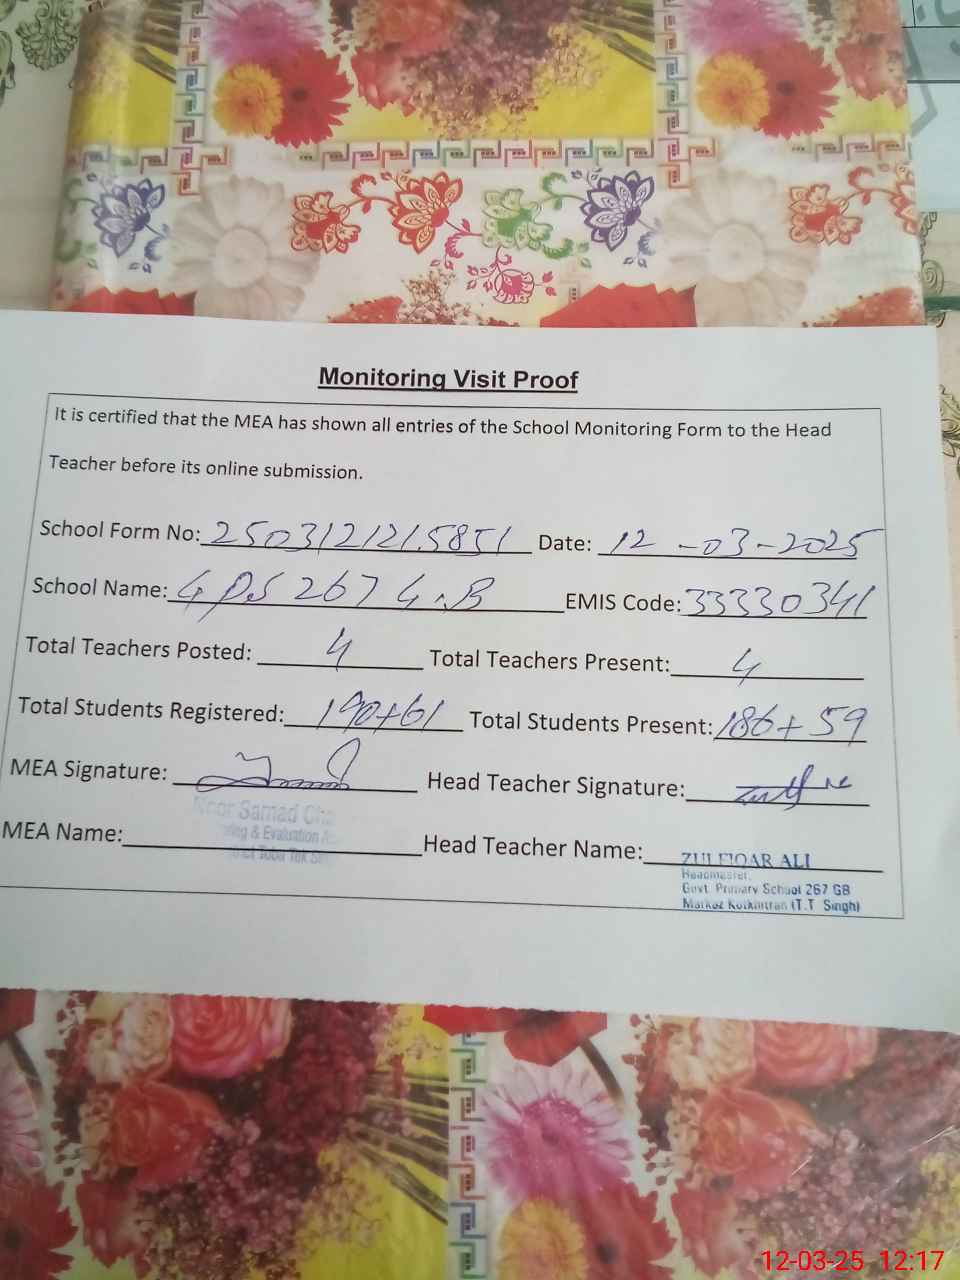 Monitoring Visit Proof
It is certified that the MEA has shown all entries of the School Monitoring Form to the Head
Teacher before its online submission.
School Form No: 2503121215851 Date: 12-03-2025
School Name: GPS 267 G.B EMIS Code: 33330341
Total Teachers Posted: 4 Total Teachers Present: 4
Total Students Registered: 190+61 Total Students Present: 186+59
MEA Signature: Head Teacher Signature:
Noor Samad
& Evaluation
Toba Tek
MEA Name: Head Teacher Name:
ZULFIQAR ALI
Headmaster.
Govt. Primary School 267 GB
Markaz (T.T Singh)
12-03-25 12:17